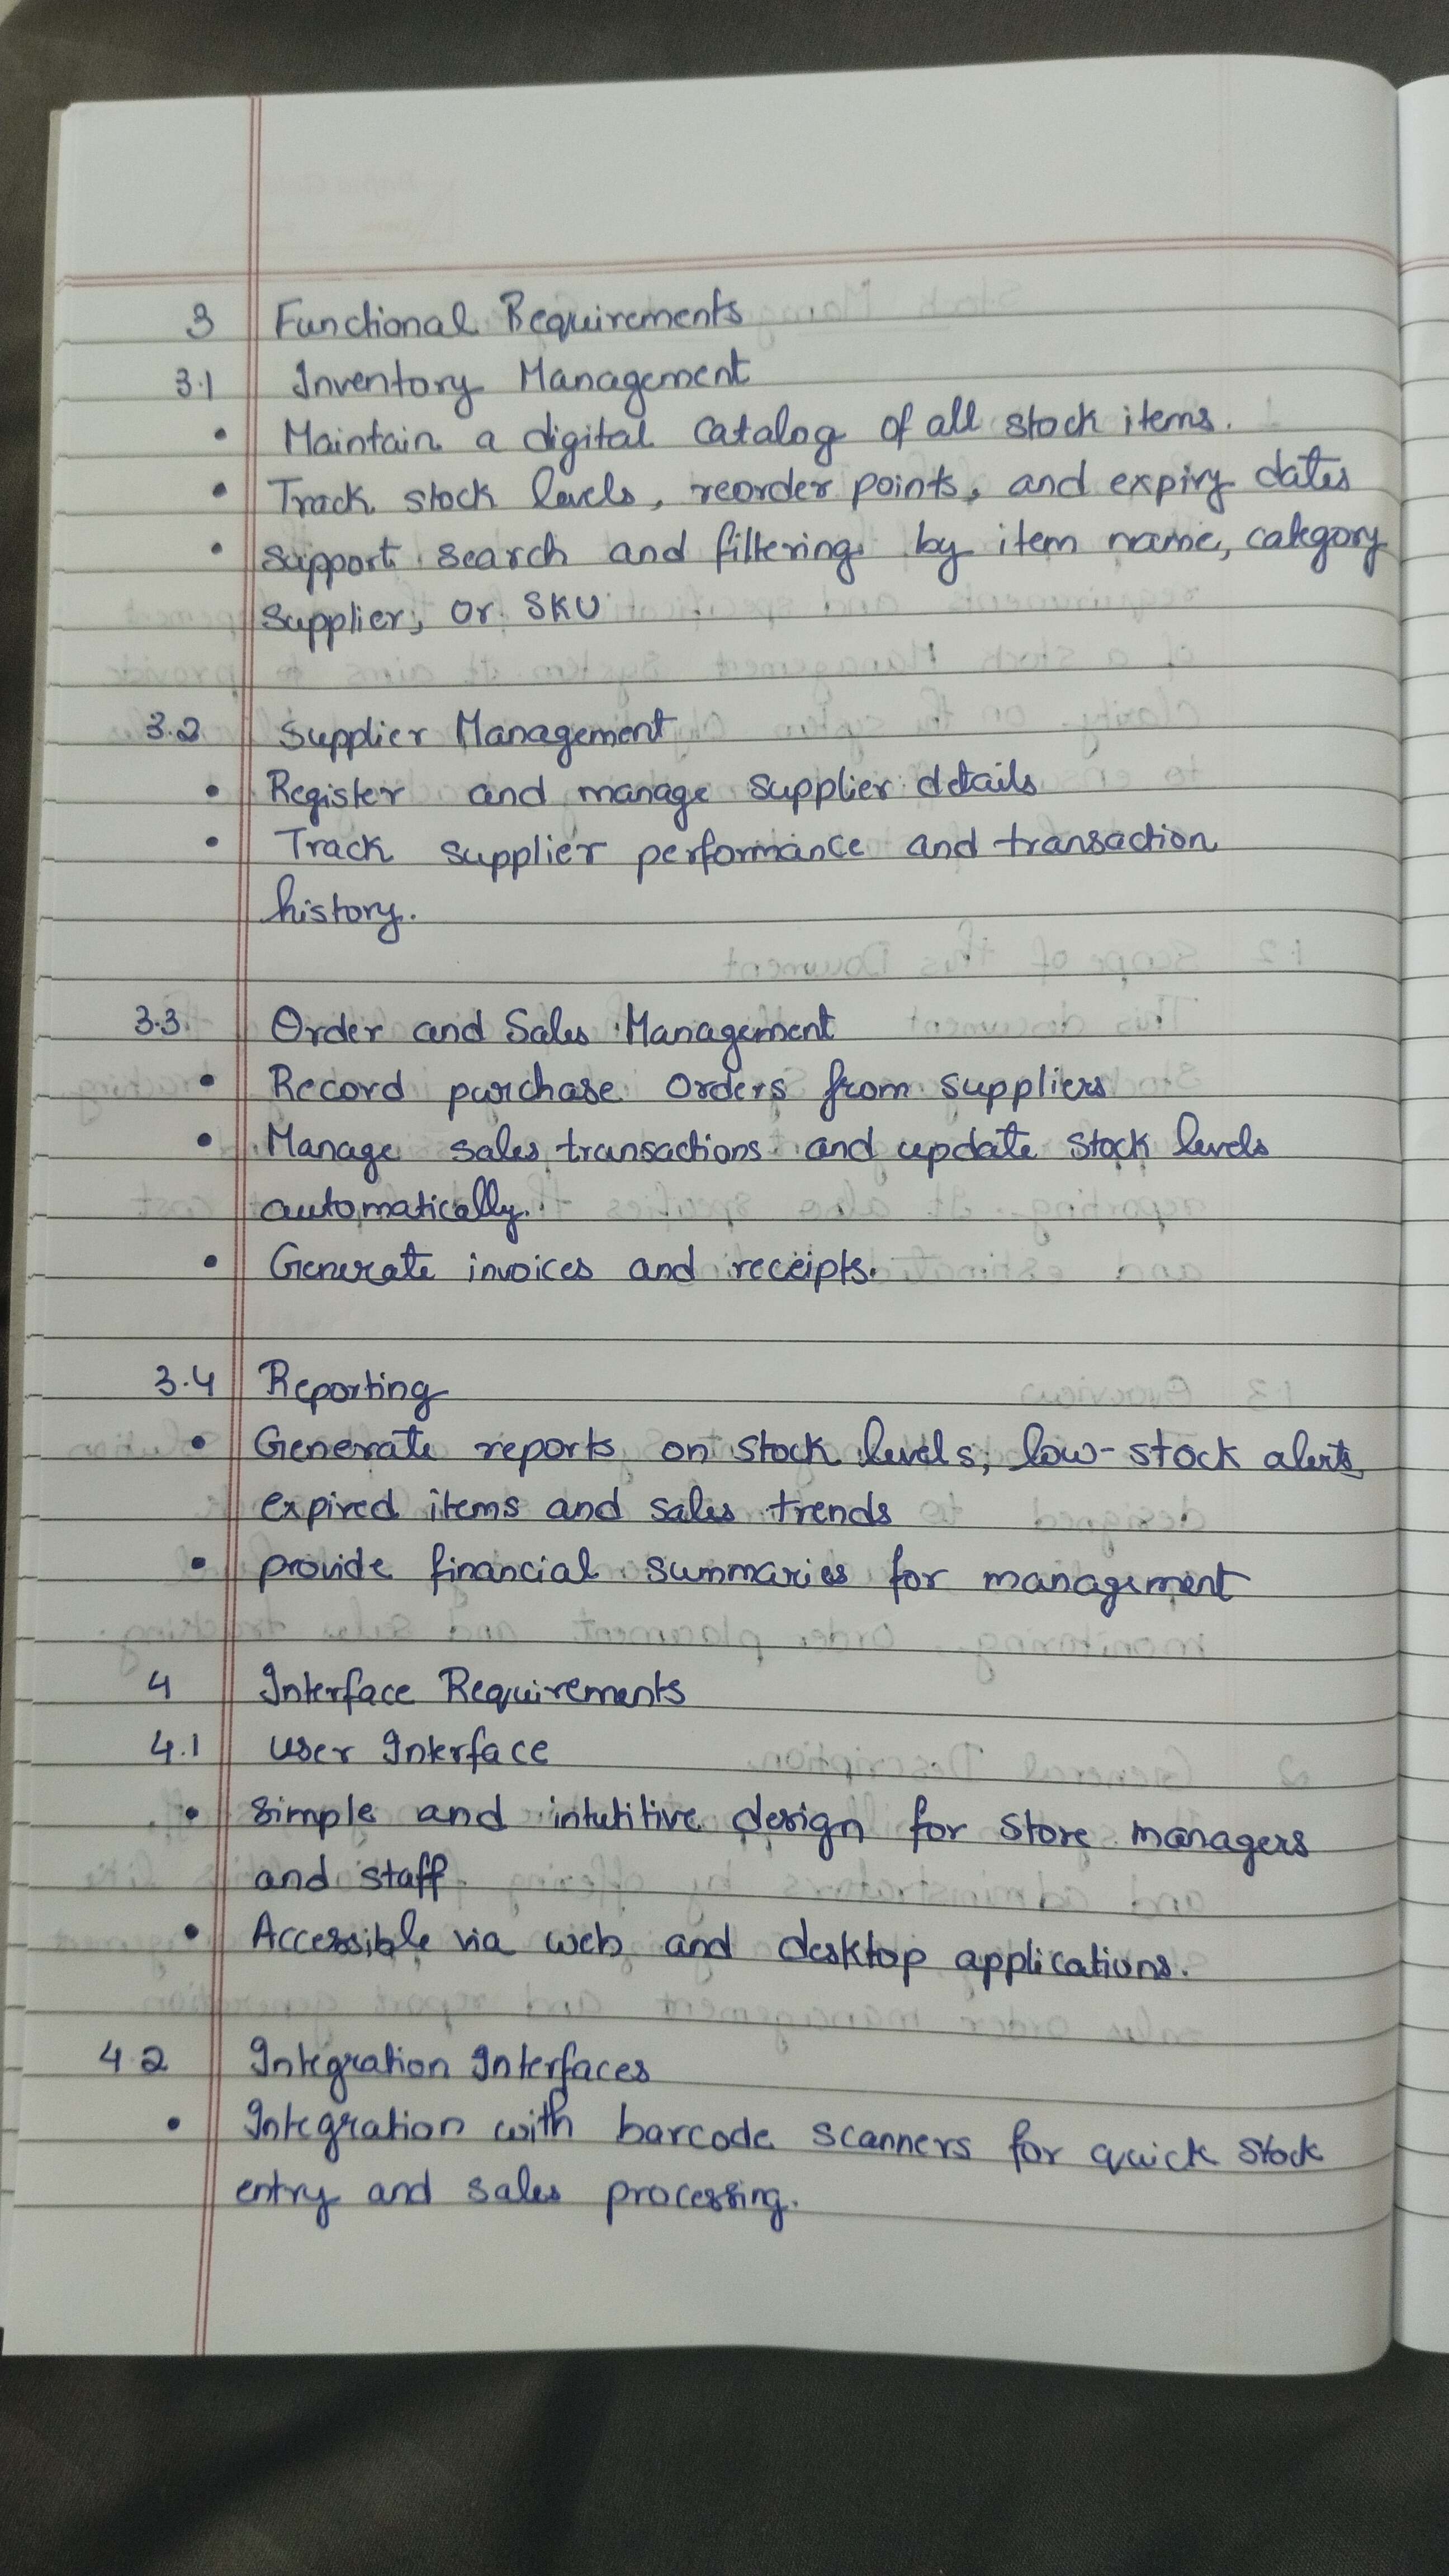 3 Functional Requirements
3.1 Inventory Management
• Maintain a digital catalog of all stock items.
• Track stock levels, reorder points, and expiry dates
• Support search and filtering by item name, category
supplier, or SKU
3.2 Supplier Management
• Register and manage supplier details
• Track supplier performance and transaction
history.
3.3 Order and Sales Management
• Record purchase orders from suppliers
• Manage sales transactions and update stock levels
automatically.
• Generate invoices and receipts.
3.4 Reporting
• Generate reports on stock levels, low-stock alerts
expired items and sales trends
• provide financial summaries for management
4 Interface Requirements
4.1 User Interface
• Simple and intutitive design for store managers
and staff.
• Accessible via web and desktop applications.
4.2 Integration Interfaces
• Integration with barcode scanners for quick stock
entry and sales processing.